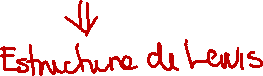 ⇓
Estructura de Lewis